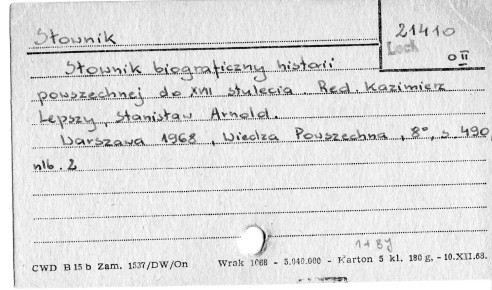 Słownik
21410
Lock
0 II
Słownik biograficzny historii
powszechnej do XVII stulecia. Red. Kazimierz
Lepszy, Stanisław Arnold.
Warszawa 1968, Wiedza Powszechna, 8°, s. 490
nlb. 2
1+BJ
CWD B 15 b Zam. 1537/DW/On Wrak 1068 - 5.040.000 - Karton 5 kl. 180 g. - 10.XII.68.